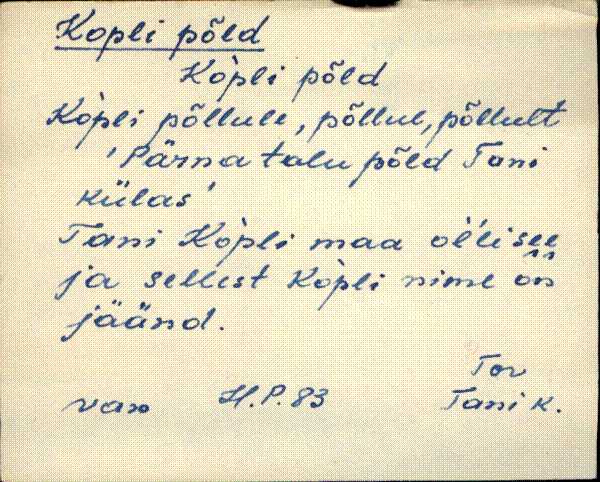 Kopli põld
Ko̔pli põld
Ko̔pli põllule, põllul, põllult
'Pärna talu põld Tani
külas'
Tani Ko̔pli maa oĺ'lisee
ja sellest Ko̔pli nime on
jäänd.
Tor
van H.P. 83 Tani k.